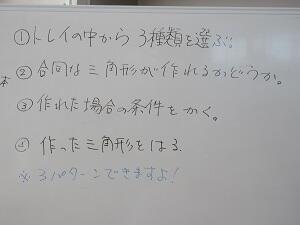 ①トレイの中から3種類を選ぶ。
②合同な三角形が作れるかどうか。
本
③作れた場合の条件をかく。
④作った三角形をはる。
※3パターンできますよ!